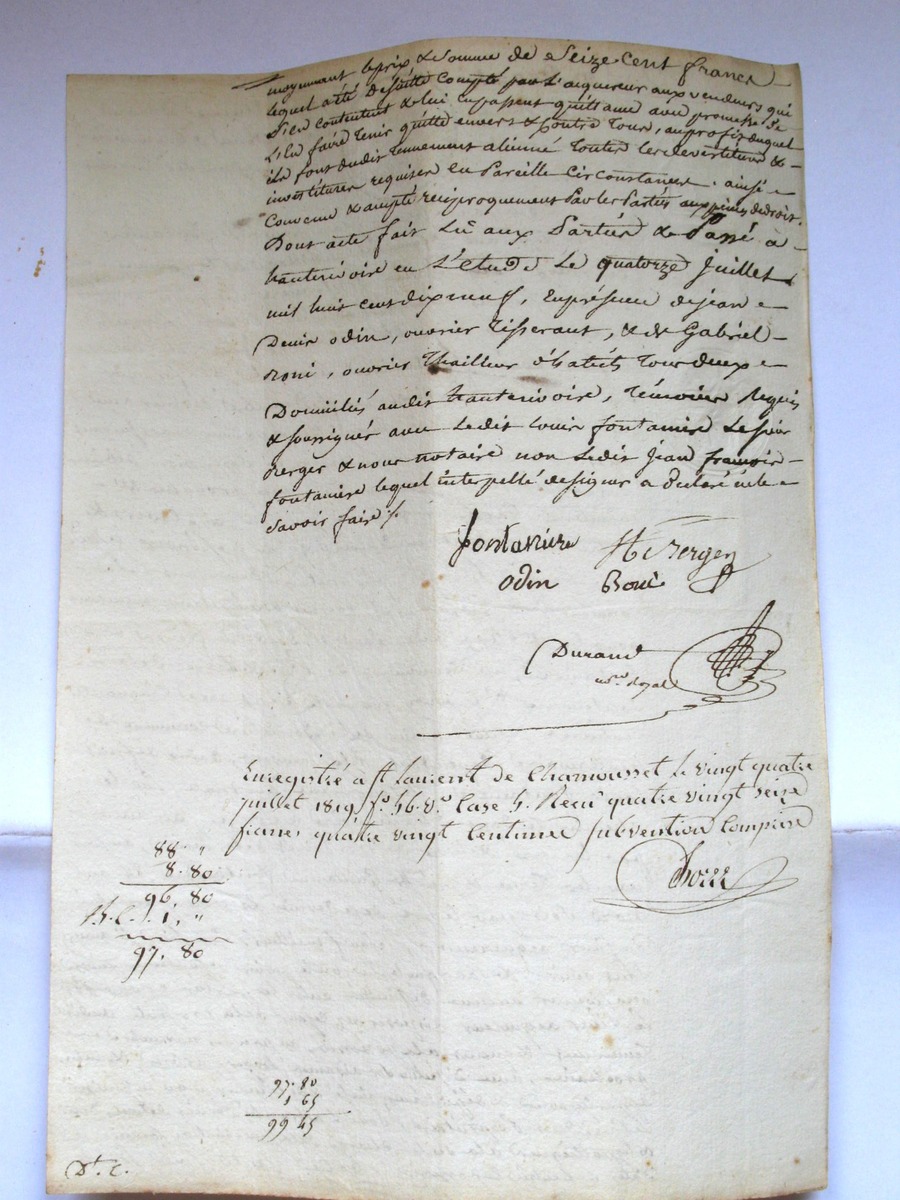 moyennant le prix & somme de Seize Cent francs
lequel a été desuitte Compté par L'aquereur aux vendeurs qui
s'en contentent & lui en passent quittance avec promesse de
L'en faire tenir quitte envers & Contre Tous, au profit duquel
ils font dudit Tennement aliénné Toutes les devestitures &
investitures requises en Pareille Circonstance. ainsi
Convenu & accepté reciproquement Par les Partiés aux peines de droit.
Dont acte fait Lû aux Partiés & Passé à
hauterivoire en L'Etude Le quatorze Juillet
mil huit cent dix neuf, En présence de jean
Denis odin, ouvrier Tisserant, & de Gabriel
, ouvrier Thailleur d'habits Tous deux
Domiciliés audit hauterivoire, Témoins Requis
& soussignés avec Ledit Louis fontaniere Le sieur
Berger & nous notaire non Ledit Jean francois
fontaniere lequel interpellé de signer a déclaré ne le
Savoir faire ./.
fontaniere Berger
odin
Durand
no.re Royal
Enregistré a St Laurent de Chamousset le vingt quatre
juillet 1819 fo. 56. vo. Case 5. Recu quatre vingt seize
francs quatre vingt Centimes subvention Comprise
88 "
8. 80
96. 80
1, "
97. 80
97. 80
1 65
99 45
Dt. C.